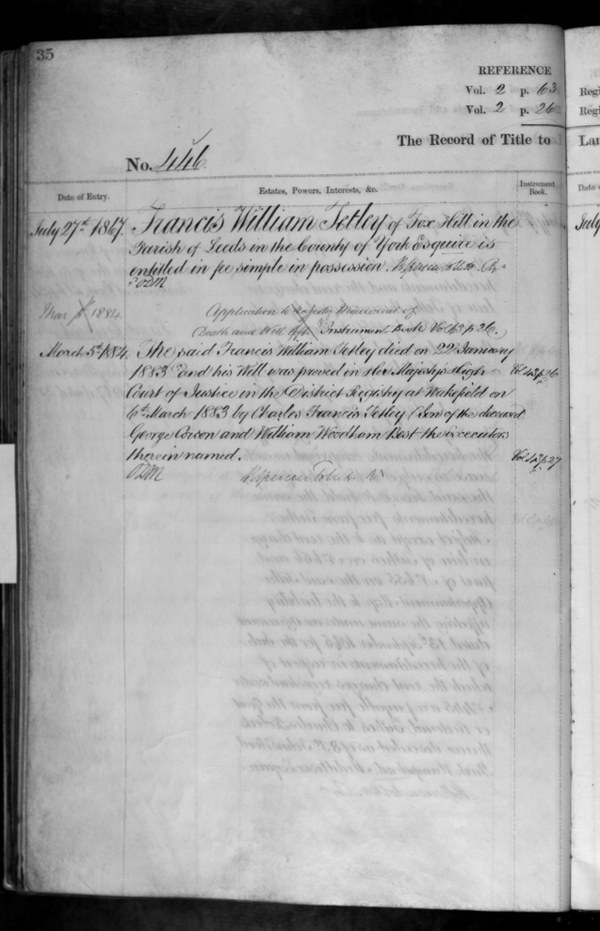 35
REFERENCE
Vol. 2 p. 63
Vol. 2 p. 26
The Record of Title to
No. 446
Date of Entry.
Estates, Powers, Interests, &c.
Instrument Book.
July 27th 1867. Francis William Tetley of Fox Hill in the
Parish of Leeds in the County of York Esquire is
entitled in fee simple in possession.
ODM
Mar 1884 Application to
Death and Will Instrument Book Vol 43 p 26.
March 5th 1884. The said Francis William Tetley died on 22 January
1883 and his Will was proved in Her Majesty's High Vol 43 p. 26
Court of Justice in the District Registry at Wakefield on
6th March 1883 by Charles Francis Tetley (Son of the deceased
George Corson and William Woodham Best the executors
therein named. Vol 43 p. 27
ODM
Regi
Regi
Lan
Date
July